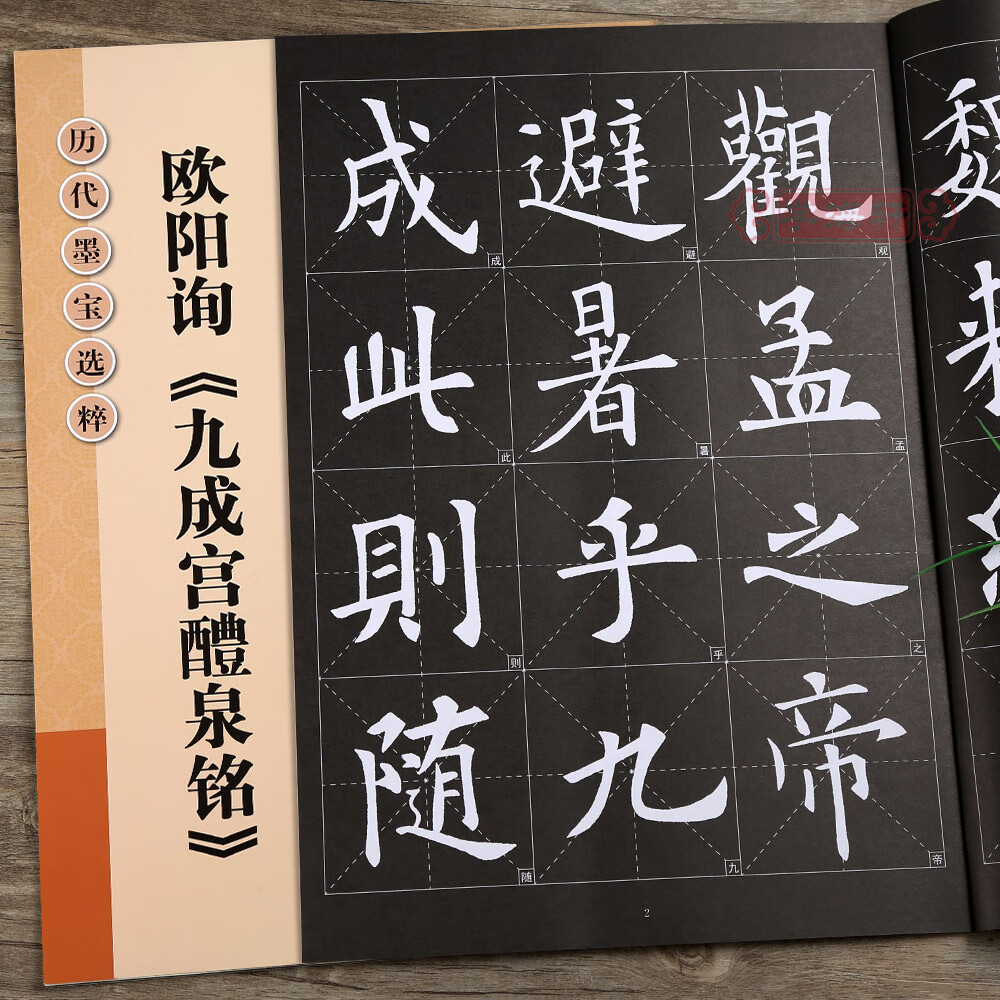 历代墨宝选粹
欧阳询《九成宫醴泉铭》
觀孟之帝
避暑乎九
成此則随
观孟之帝
避暑乎九
成此则随
2